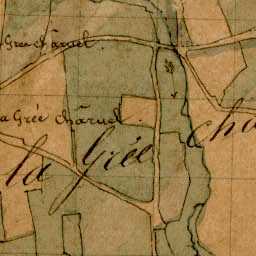 la Grée Charuel.
la Grée Charuel.
la Grée Cha